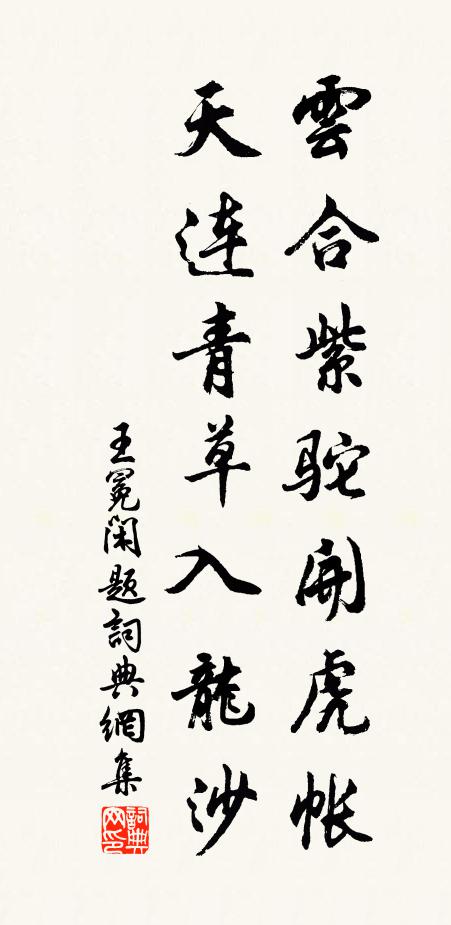 雲合紫駝開虎帳
天連青草入龍沙
王冕閑題詞典網集
詞典网印